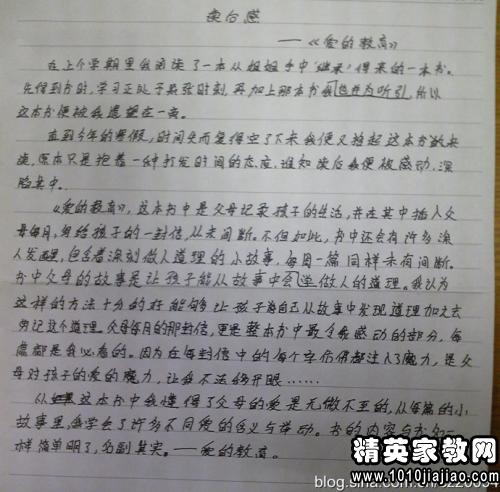 读后感
——《爱的教育》
在上个学期里我阅读了一本从姐姐手中"继承"得来的一本书。
先得到书时,学习正处于紧张时刻,再加上那本书我也并为听引,所以
这本书便被我遗望在一夹。
直到今年的寒假,时间失而复得空了下来我便又拾起这本书欲来
读,原本只是抱着一种打发时间的态度,谁知读后我便被感动,深
陷其中。
《爱的教育》,这本书中是父母记录孩子的生活,并在其中插入父
母每月,写给孩子的一封信,从未间断。不但如此,书中还会有许多深
人发醒,包含着深刻做人道理的小故事,每周一篇同样未有间断。
书中父母的故事是让孩子能从故事中会学做人的道理。我认为
这样的方法十分的好能够让孩子海自己从故事中发现道理加之去
牢记这个道理。父母每月的那封信,更是整本书中最令我感动的部分,每
篇都是我必看的。因为在每封信中的每个字仿佛都注入了魔力,是父
母对孩子的爱的魔力,让我不法移开眼……
从这本书中我懂得了父母的爱是无微不至的,从每篇的小
故事里,我学会了许多不同爱的含义与举动。书的内容与书如一
样简单明了,名副其实。——爱的教育。
精英家教网
www.1010jiajiao.com
blog.sina.com.cn/